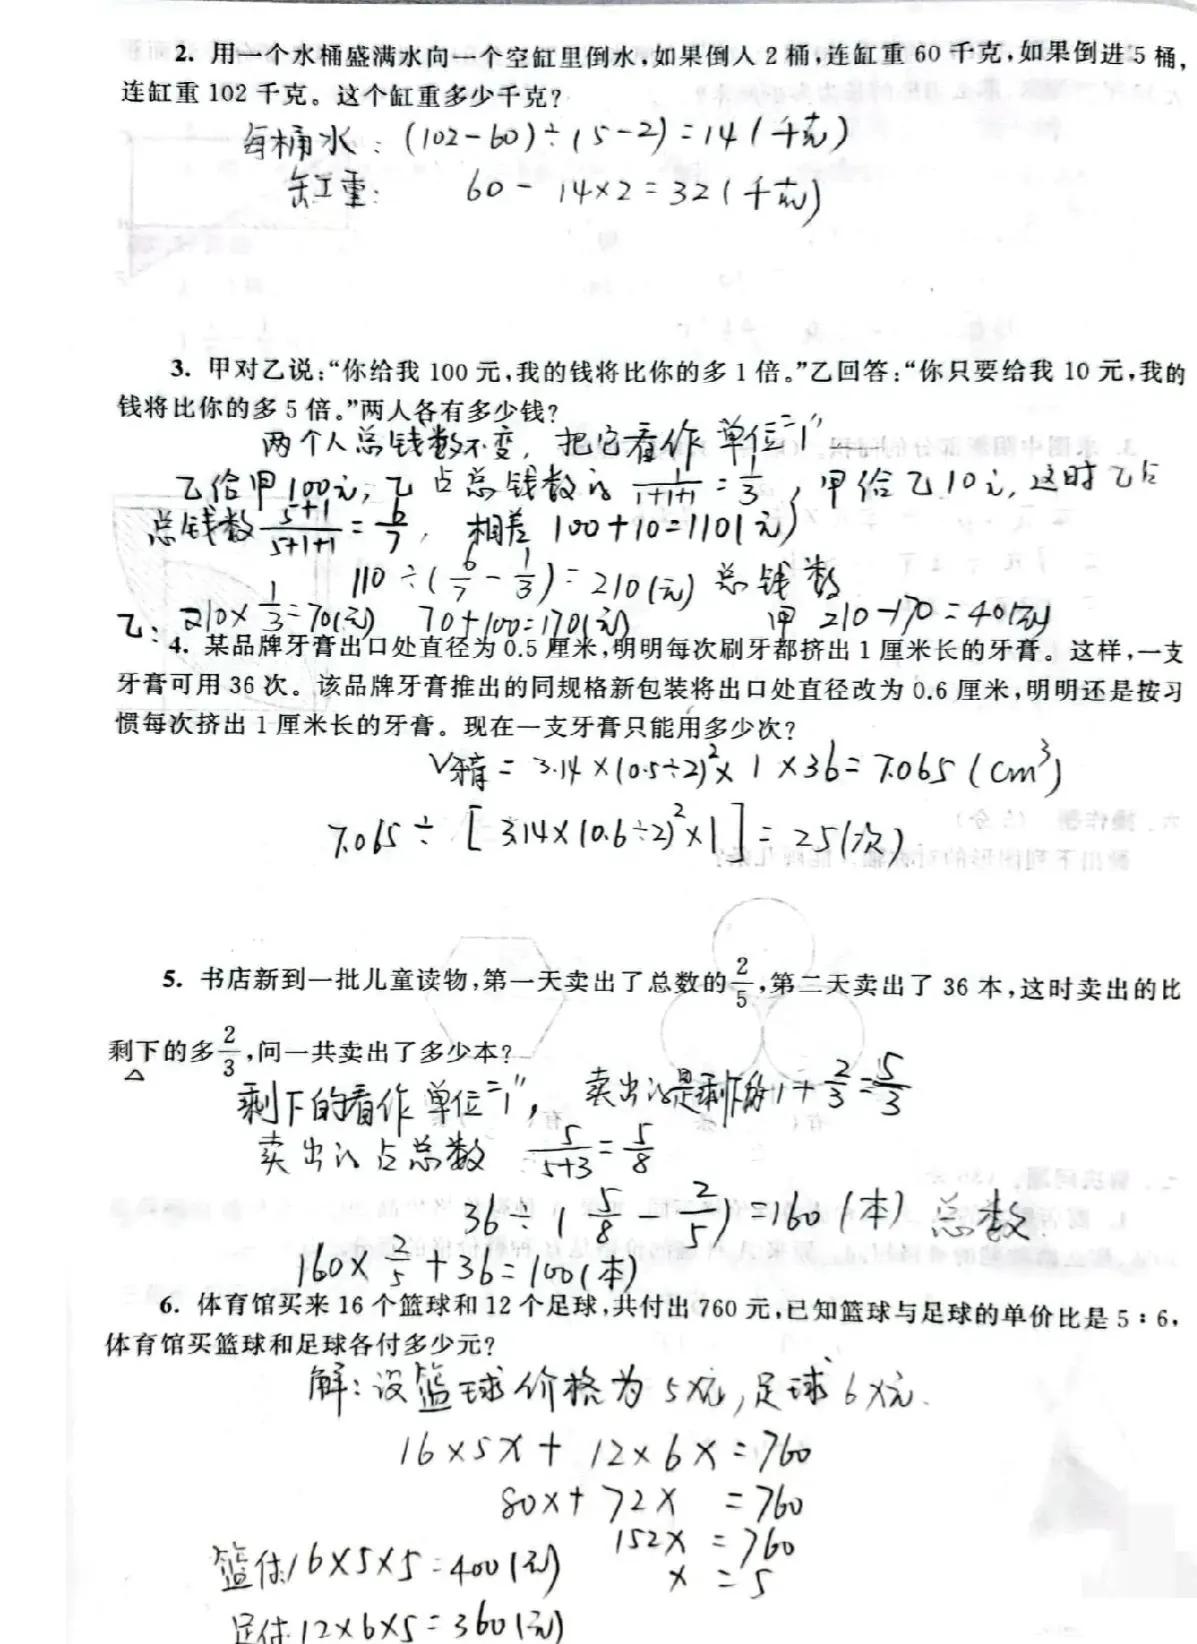 2. 用一个水桶盛满水向一个空缸里倒水,如果倒人 2 桶,连缸重 60 千克,如果倒进 5 桶,
连缸重 102 千克。这个缸重多少千克?
每桶水: (102-60)÷(5-2)=14(千克)
缸重: 60-14×2=32(千克)
3. 甲对乙说:“你给我 100 元,我的钱将比你的多 1 倍。”乙回答:“你只要给我 10 元,我的
钱将比你的多 5 倍。”两人各有多少钱?
两个人总钱数不变, 把它看作单位“1”
乙给甲100元, 乙占总钱数的 1/(1+1+1) = 1/3, 甲给乙10元, 这时乙占
总钱数 (5+1)/(5+1+1) = 6/7, 相差 100+10=110(元)
110÷(6/7-1/3)=210(元) 总钱数
乙: 210×1/3=70(元) 70+100=170(元) 甲 210-170=40(元)
4. 某品牌牙膏出口处直径为 0.5 厘米,明明每次刷牙都挤出 1 厘米长的牙膏。这样,一支
牙膏可用 36 次。该品牌牙膏推出的同规格新包装将出口处直径改为 0.6 厘米,明明还是按习
惯每次挤出 1 厘米长的牙膏。现在一支牙膏只能用多少次?
V牙膏 = 3.14×(0.5÷2)²×1×36=7.065(cm³)
7.065÷[3.14×(0.6÷2)²×1]=25(次)
5. 书店新到一批儿童读物,第一天卖出了总数的 2/5,第二天卖出了 36 本,这时卖出的比
剩下的多 2/3,问一共卖出了多少本?
剩下的看作单位“1”, 卖出的是剩下的 1+2/3=5/3
卖出的占总数 5/(5+3)=5/8
36÷(5/8-2/5)=160(本) 总数
160×2/5+36=100(本)
6. 体育馆买来 16 个篮球和 12 个足球,共付出 760 元,已知篮球与足球的单价比是 5∶6,
体育馆买篮球和足球各付多少元?
解:设篮球价格为5x元,足球6x元.
16×5x+12×6x=760
80x+72x =760
152x=760
x=5
篮付16×5×5=400(元)
足付12×6×5=360(元)